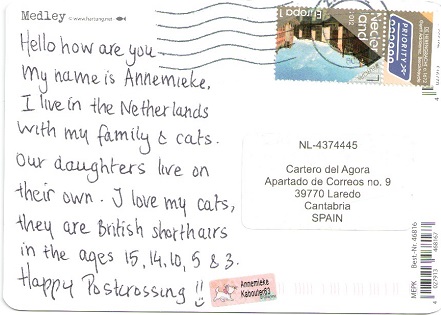 Medley © www.hartung.net
Hello how are you
My name is Annemieke,
I live in the Netherlands
with my family & cats.
Our daughters live on
their own. I love my cats,
they are British shorthairs
in the ages 15, 14, 10, 5 & 3.
Happy Postcrossing !!
Annemieke
Kabouter63
Europa 1
2012
Nederland
PRIORITY
NL-4374445
Cartero del Agora
Apartado de Correos no. 9
39770 Laredo
Cantabria
SPAIN
MEPK Best.-Nr. 46816